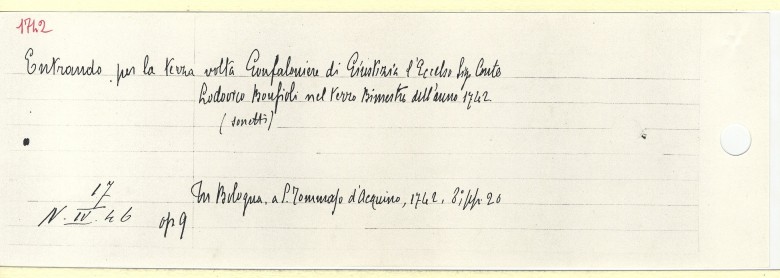 1742
Entrando per la terza volta Gonfaloniere di Giustizia l'Eccelso Sig. Conte
Lodovico Bonfioli nel terzo Bimestre dell'anno 1742
(sonetti)
In Bologna, a S. Tommaso d'Acquino, 1742, 8°, pp. 20
17
N. IV. 46 op 9